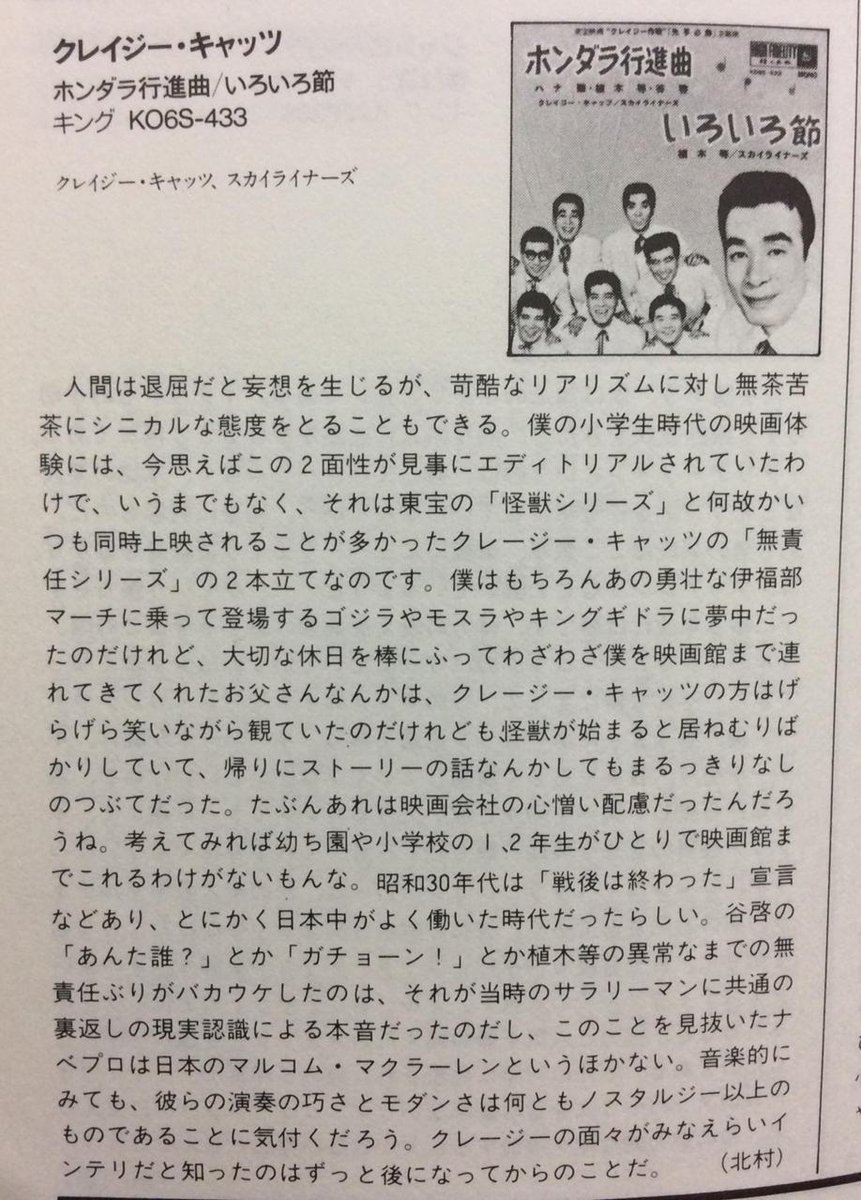 クレイジー・キャッツ
ホンダラ行進曲/いろいろ節
キング KO6S-433
クレイジー・キャッツ、スカイライナーズ
ホンダラ行進曲
クレイジー・キャッツ/スカイライナーズ
いろいろ節
植木 等/スカイライナーズ
人間は退屈だと妄想を生じるが、苛酷なリアリズムに対し無茶苦
茶にシニカルな態度をとることもできる。僕の小学生時代の映画体
験には、今思えばこの2面性が見事にエディトリアルされていたわ
けで、いうまでもなく、それは東宝の「怪獣シリーズ」と何故かい
つも同時上映されることが多かったクレージー・キャッツの「無責
任シリーズ」の2本立てなのです。僕はもちろんあの勇壮な伊福部
マーチに乗って登場するゴジラやモスラやキングギドラに夢中だっ
たのだけれど、大切な休日を棒にふってわざわざ僕を映画館まで連
れてきてくれたお父さんなんかは、クレージー・キャッツの方はげ
らげら笑いながら観ていたのだけれども、怪獣が始まると居ねむりば
かりしていて、帰りにストーリーの話なんかしてもまるっきりなし
のつぶてだった。たぶんあれは映画会社の心憎い配慮だったんだろ
うね。考えてみれば幼ち園や小学校の1、2年生がひとりで映画館ま
でこれるわけがないもんな。昭和30年代は「戦後は終わった」宣言
などあり、とにかく日本中がよく働いた時代だったらしい。谷啓の
「あんた誰?」とか「ガチョーン!」とか植木等の異常なまでの無
責任ぶりがバカウケしたのは、それが当時のサラリーマンに共通の
裏返しの現実認識による本音だったのだし、このことを見抜いたナ
ベプロは日本のマルコム・マクラーレンというほかない。音楽的に
みても、彼らの演奏の巧さとモダンさは何ともノスタルジー以上の
ものであることに気付くだろう。クレージーの面々がみなえらいイ
ンテリだと知ったのはずっと後になってからのことだ。 (北村)